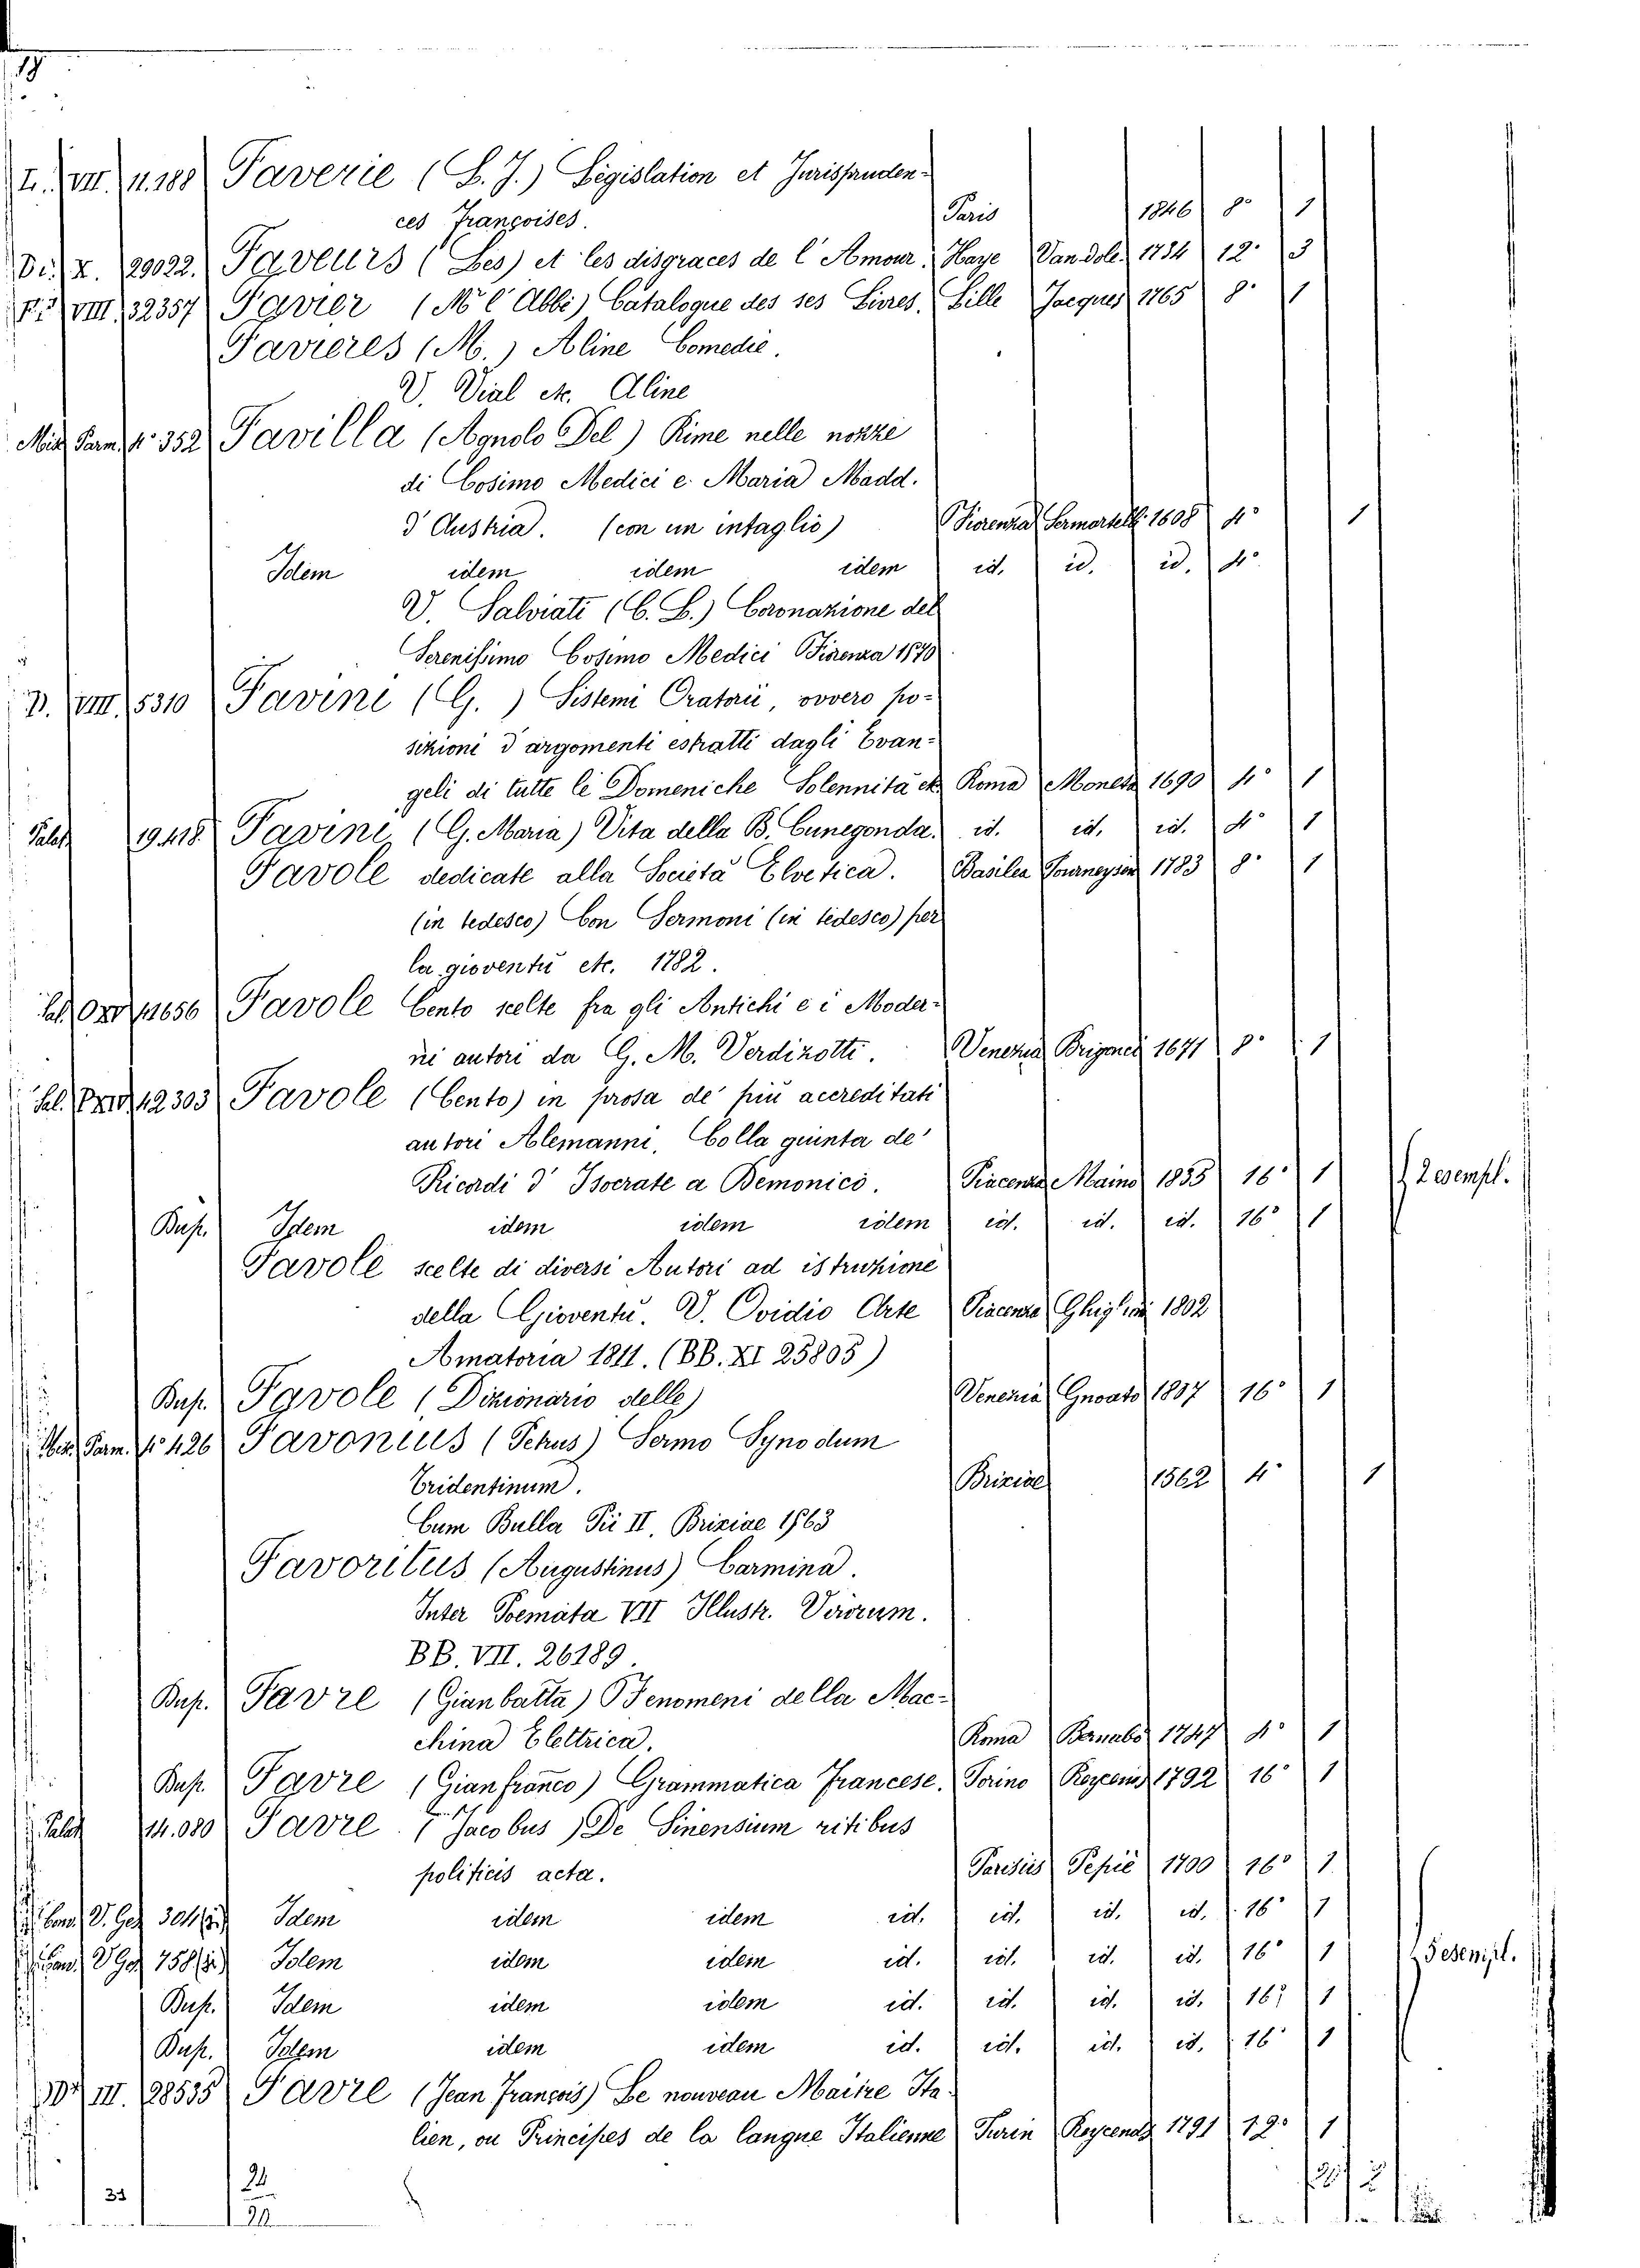 19
L. VII. 11.188 Faverie (L. J.) Législation et Jurispruden-
ces françoises. Paris 1846 8° 1
X. 29022. Faveurs (Les) et les disgraces de l'Amour. Haye Van dole. 1734 12° 3
VIII. 32357 Favier (Mr l'Abbé) Catalogue des ses Livres. Lille Jacques 1765 8° 1
Favieres (M.) Aline Comedie.
V. Vial etc. Aline
Parm. 4° 352 Favilla (Agnolo Del) Rime nelle nozze
di Cosimo Medici e Maria Madd.
d'Austria. (con un intaglio) Fiorenza Sermartelli 1608 4° 1
Idem idem idem idem id. id. id. 4°
V. Salviati (C. L.) Coronazione del
Serenissimo Cosimo Medici Firenza 1570
D. VIII. 5310 Favini (G.) Sistemi Oratorii, ovvero po-
sizioni d'argomenti estratti dagli Evan-
geli di tutte le Domeniche Solennità etc. Roma Moneta 1690 4° 1
Palat. 19.418 Favini (G. Maria) Vita della B. Cunegonda. id. id. id. 4° 1
Favole dedicate alla Società Elvetica. Basilea Tourneysen 1783 8° 1
(in tedesco) Con Sermoni (in tedesco) per
la gioventù etc. 1782.
11656 Favole Cento scelte fra gli Antichi e i Moder-
ni autori da G. M. Verdizotti. Venezia Brigonci 1671 8° 1
12303 Favole (Cento) in prosa de' più accreditati
autori Alemanni, Colla giunta de'
Ricordi d'Isocrate a Demonico. Piacenza Maino 1835 16° 1 2 esempl.
Busp. Idem idem idem idem id. id. id. 16° 1
Favole scelte di diversi Autori ad istruzione
della Gioventù. V. Ovidio Arte Piacenza Ghiglioni 1802
Amatoria 1811. (BB. XI 25805)
Busp. Favole (Dizionario delle) Venezia Gnoato 1837 16° 1
Parm. 4° 426 Favonius (Petrus) Sermo Synodum
Tridentinum. Brixiae 1562 4° 1
Cum Bulla Pii II, Brixiae 1563
Favoritus (Augustinus) Carmina.
Inter Poemata VII Illustr. Virorum.
BB. VII. 26189.
Busp. Favre (Gianbatta) Fenomeni della Mac-
china Elettrica. Roma Barnabò 1747 4° 1
Busp. Favre (Gianfranco) Grammatica Francese. Torino Reycens 1792 16° 1
Palat. 14.080 Favre (Jacobus) De Sinensium ritibus
politicis acta. Parisiis Pepié 1700 16° 1
V. Gez 304 Idem idem idem id. id. id. id. 16° 1
V. Gez 758 Idem idem idem id. id. id. id. 16° 1 5 esempl.
Busp. Idem idem idem id. id. id. id. 16° 1
Busp. Idem idem idem id. id. id. id. 16° 1
III. 28535 Favre (Jean François) Le nouveau Maitre Ita-
lien, ou Principes de la langue Italienne Turin Reycends 1791 12° 1
31